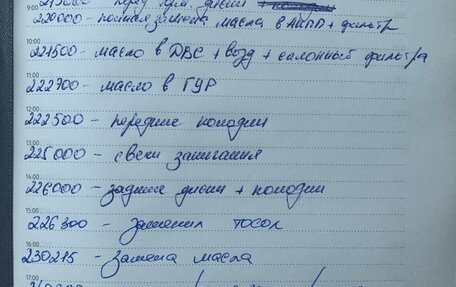 219000 перед торм. диски +
9:00
220000 - полная замена масла в АКПП + фильтр
10:00
221500 - масло в ДВС + возд + салонный фильтра
11:00
222700 - масло в ГУР
12:00
222500 - передние колодки
13:00
225000 - свечи зажигания
226000 - задние диски + колодки
15:00
226300 - заменил тосол
16:00
230215 - замена масла
17:00